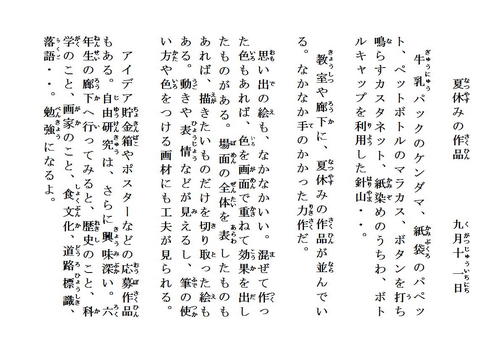 夏休みの作品　九月十一日
牛乳パックのケンダマ、紙袋のパペッ
ト、ペットボトルのマラカス、ボタンを打ち
鳴らすカスタネット、紙染めのうちわ、ボト
ルキャップを利用した針山・・。
教室や廊下に、夏休みの作品が並んでい
る。なかなか手のかかった力作だ。
思い出の絵も、なかなかいい。混ぜて作っ
た色もあれば、色を画面で重ねて効果を出し
たものがある。場面の全体を表したものも
あれば、描きたいものだけを切り取った絵も
ある。動きや表情などが見えるし、筆の使
い方や色をつける画材にも工夫が見られる。
アイデア貯金箱やポスターなどの応募作品
もある。自由研究は、さらに興味深い。六
年生の廊下へ行ってみると、歴史のこと、科
学のこと、画家のこと、食文化、道路標識、
落語・・。勉強になるよ。